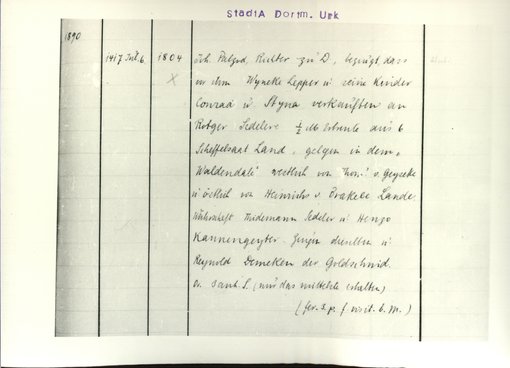 StadtA Dortm. Urk
1890
1417 Juli 6 1804 Joh. Palzod, Richter zu D, bezeugt, dass
x
vor ihm Wyneke Lepper u. seine Kinder
Conrad u. Styna verkauften an
Rotger Sedeler ½ M Erbrente aus 6
Scheffelsaat Land, gelegen in dem
"Waldendale" westlich von Thom. v. Geyseke
u. östlich von Heinrichs v. Brakele Lande.
Währschaft Thidemann Sedeler u. Henzo
Kannengeyter. Zeugen dieselben u.
Reynold Demeken der Goldschmid.
Or. 3 anh. S. (nur das mittelste erhalten)
(fer. 3. p. f. visit. b. M.)